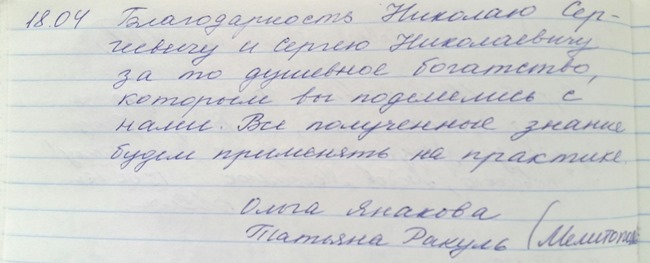 18.04 Благодарность Николаю Сер-
геевичу и Сергею Николаевичу
за то душевное богатство,
которым вы поделились с
нами. Все полученные знание
будем применять на практике
Ольга Янакова
Татьяна Ракуль (Мелитополь